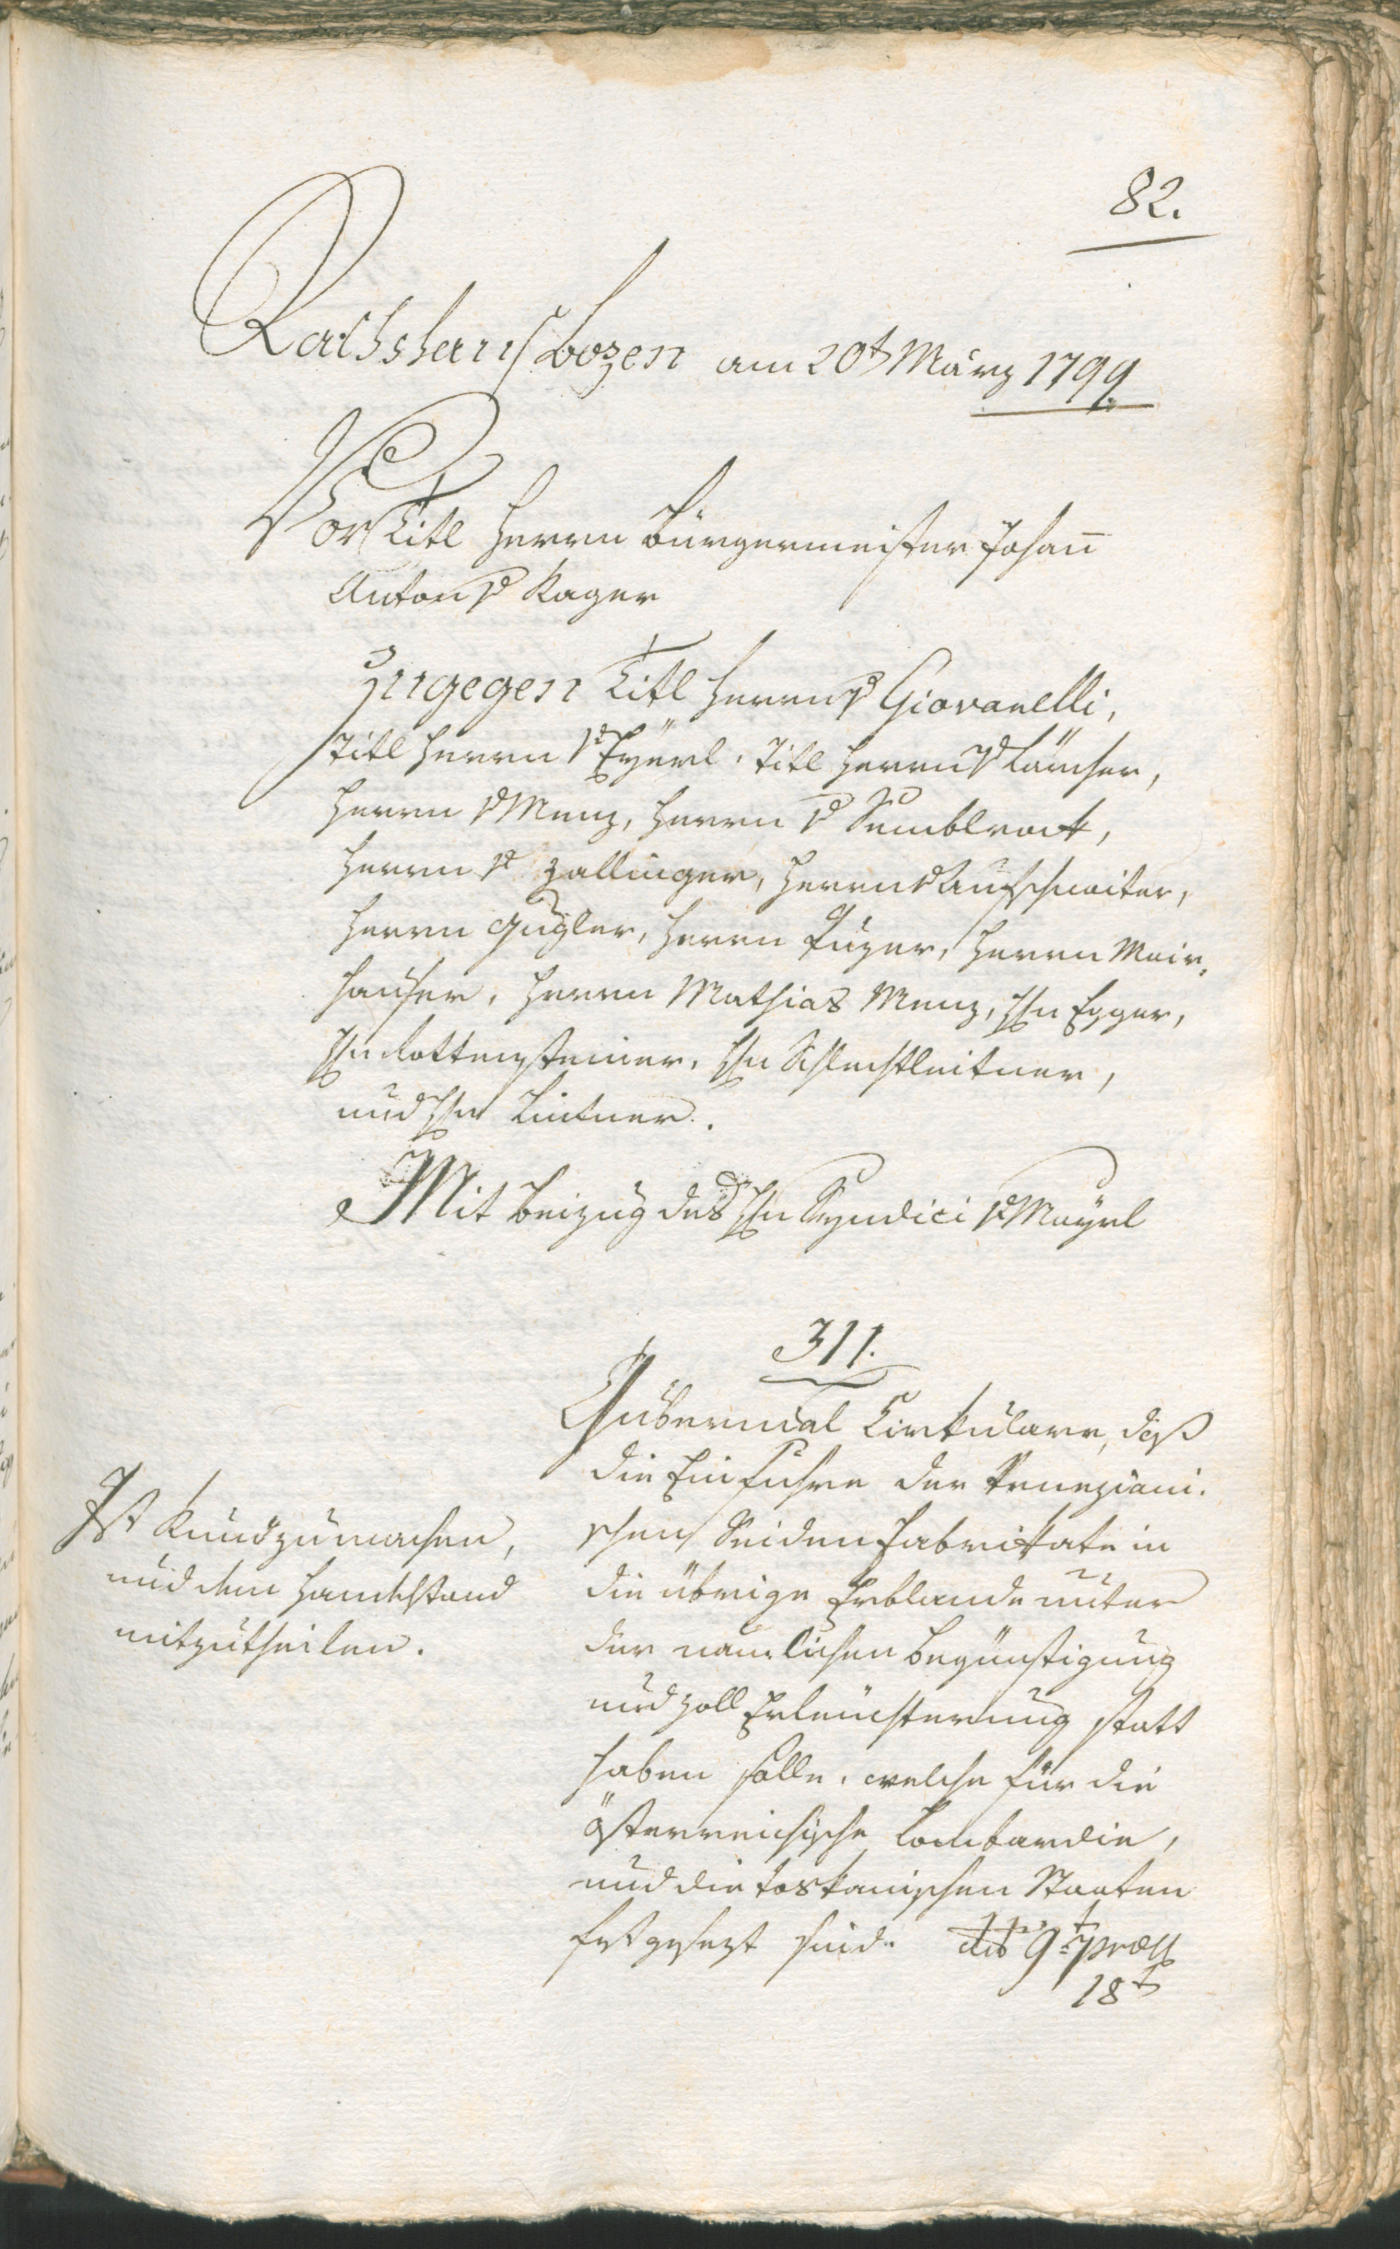 82.
Rathshaus Bozen am 20t März 1799.
Vor Titl Herrn Bürgermeister Johan̄
Anton v Kager
Zugegen Titl Herrn v Giovanelli,
Titl Herrn v Eÿerl. Titl Herrn v Lärcher,
Herrn v Menz, Herrn v Sembl
Herrn v Zallinger, Herrn v Aufschnaiter,
Herrn Gugler, Herrn Puzer, Herrn Mair-
hauser, Herrn Mathias Menz, Hn Egger,
Hn Rottensteiner, Hn Schlechtleitner,
und Hn Lintner.
Mit Beizug des Hn Syndici v Mayrl
311.
Gubernial Cirkulare, daß
die Einfuhre der Veneziani-
schen Seiden Fabrikate in
die übrige Erblande unter
der nämlichen Begünstigung
und Zoll Erleuchterung statt
haben solle, welche für die
österreichische Lombardie,
und die toskanischen Staaten
festgesezt sind. dto 9t præs
18t
Ist Kundzumachen,
und dem Handelstand
mitzutheilen.